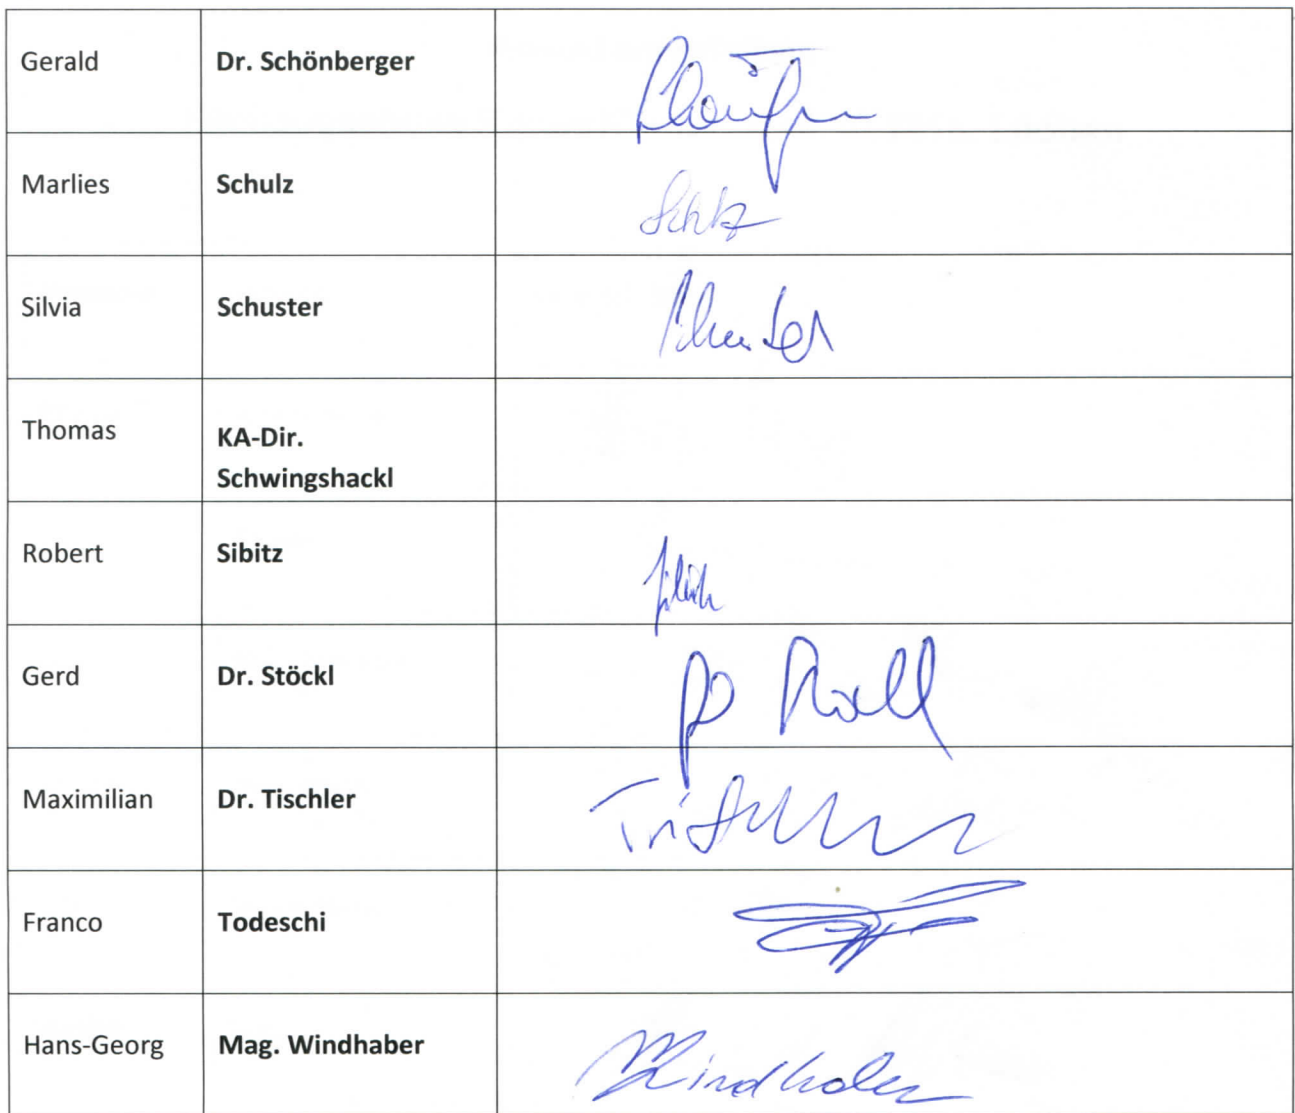 Gerald Dr. Schönberger
Marlies Schulz
Schulz
Silvia Schuster
Schuster
Thomas KA-Dir.
Schwingshackl
Robert Sibitz
Gerd Dr. Stöckl
Maximilian Dr. Tischler
Franco Todeschi
Hans-Georg Mag. Windhaber
Windhaber